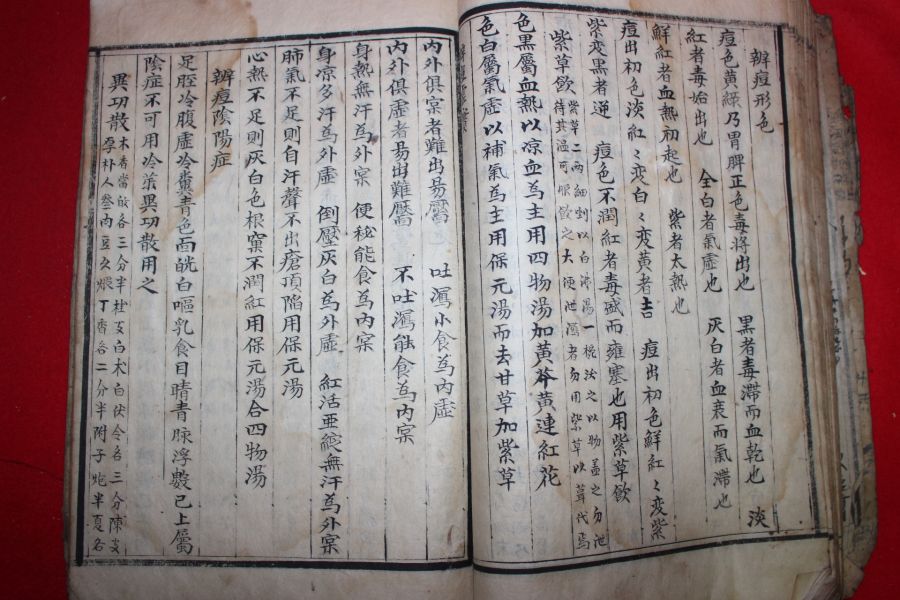 辨痘形色
痘色黃綠乃胃脾正色毒將出也 黑者毒滯而血乾也 淡
紅者毒始出也 全白者氣虛也 灰白者血衰而氣滯也
鮮紅者血熱初起也 紫者太熱也
痘出初色淡紅〻變白〻變黃者吉 痘出初色鮮紅〻變紫
紫變黑者逆 痘色不潤紅者毒盛而雍塞也用紫草飮
紫草飮 紫草二兩細剉以白沸湯一椀沃之以物盖之勿泄
待其溫可服飮之 大便泄瀉者勿用紫草以茸代焉
色黑屬血熱以凉血爲主用四物湯加黃芩黃連紅花
色白屬氣虛以補氣爲主用保元湯而去甘草加紫草
內外俱宲者難出昜靨 吐瀉小食爲內虛
內外俱虛者昜出難靨 不吐瀉能食爲內宲
身熱無汗爲外宲 便秘能食爲內宲
身凉多汗爲外虛 倒壓灰白爲外虛 紅活亜綻無汗爲外宲
肺氣不足則自汗聲不出瘡頂陷用保元湯
心熱不足則灰白色根窠不潤紅用保元湯合四物湯
辨痘陰陽症
足脛冷腹虛冷糞靑色面㿠白嘔乳食目睛靑脉浮數已上屬
陰症不可用冷藥異功散用之
異功散 木香當皈各三分半桂支白术白伏令各三分陳皮
厚朴人參肉豆久煨丁香各二分半附子炮半夏各